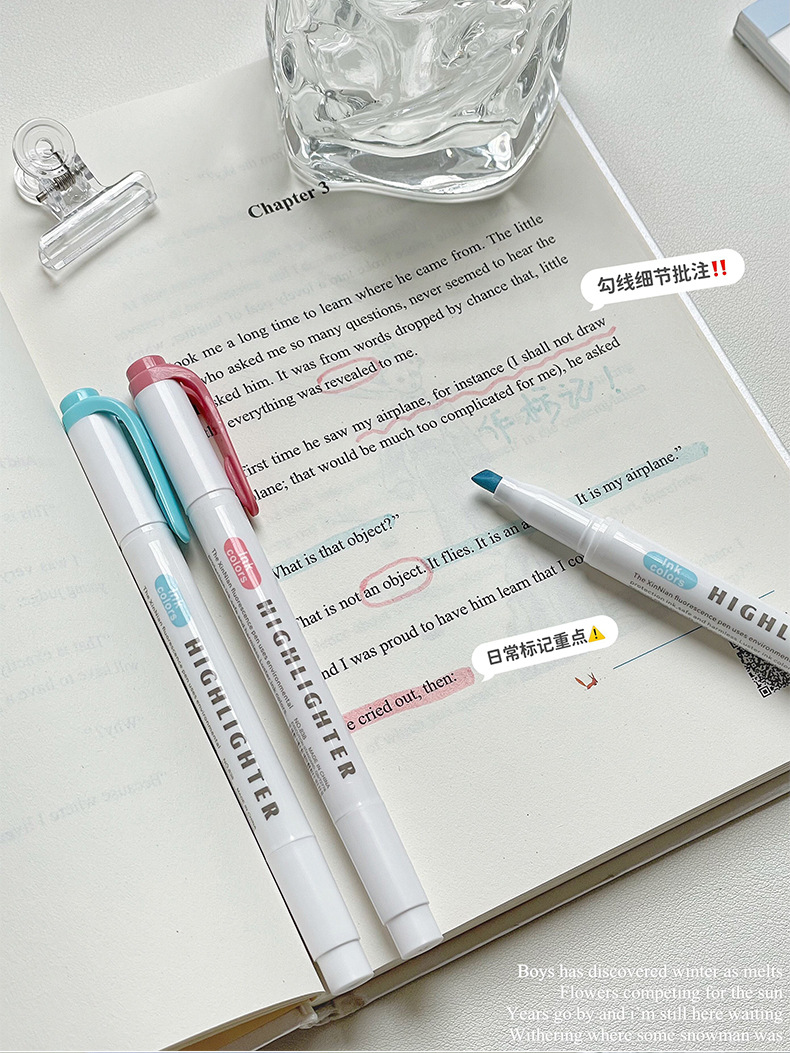 Chapter 3
ook me a long time to learn where he came from. The little
who asked me so many questions, never seemed to hear the
sked him. It was from words dropped by chance that, little
everything was revealed to me.
勾线细节批注!!
first time he saw my airplane, for instance (I shall not draw
lane; that would be much too complicated for me), he asked
作标记!
What is that object?"
That is not an object. It flies. It is an a It is my airplane."
nd I was proud to have him learn that I co
日常标记重点
e cried out, then:
ink
colors
The XinNian fluorescence pen uses environmental
HIGHLIGHTER
ink
colors
The XinNian fluorescence pen uses environmental
HIGHLIGHTER
NO.838 MADE IN CHINA
ink
colors
The XinNian fluorescence pen uses environment
HIGHLIGH
Boys has discovered winter as melts
Flowers competing for the sun
Years go by and i'm still here waiting
Withering where some snowman was